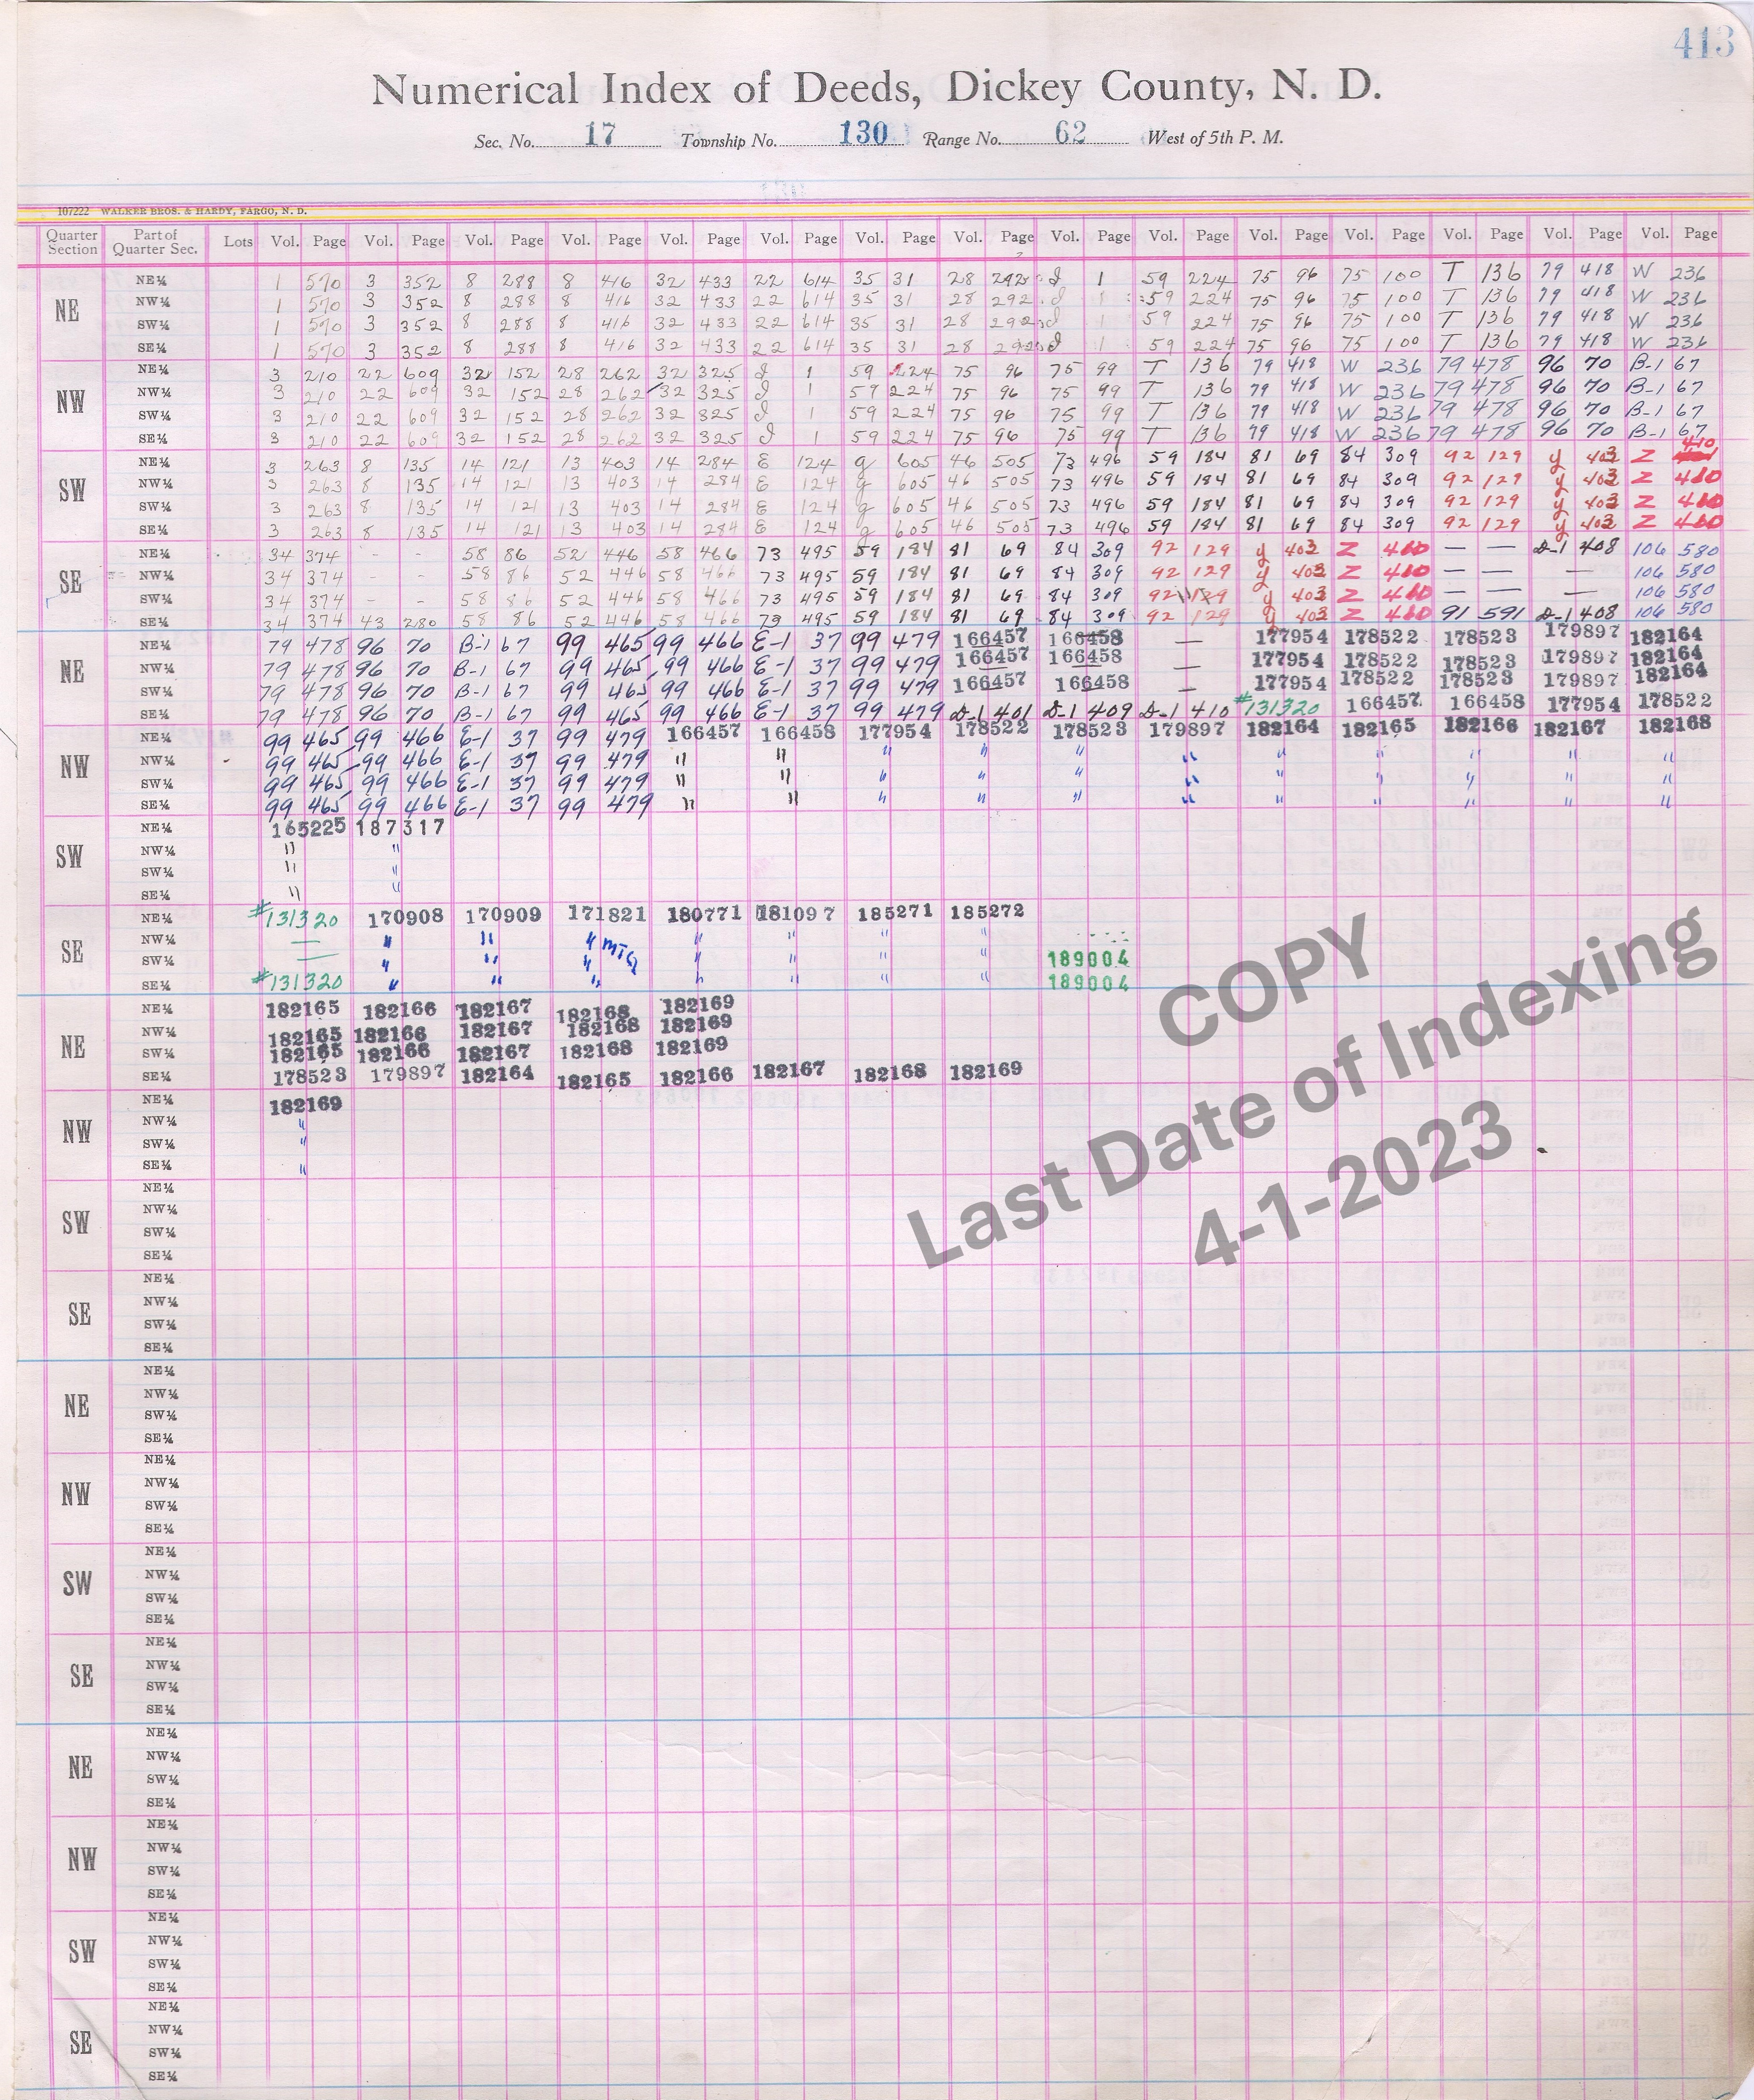 413
Numerical Index of Deeds, Dickey County, N. D.
Sec. No. 17 Township No. 130 Range No. 62 West of 5th P. M.
107222 WALKER BROS. & HARDY, FARGO, N. D.
Quarter Section Part of Quarter Sec. Lots Vol. Page Vol. Page Vol. Page Vol. Page Vol. Page Vol. Page Vol. Page Vol. Page Vol. Page Vol. Page Vol. Page Vol. Page Vol. Page Vol. Page Vol. Page
NE
NE¼ 1 570 3 352 8 288 8 416 32 433 22 614 35 31 28 292 J 1 59 224 75 96 75 100 T 136 79 418 W 236
NW¼ 1 570 3 352 8 288 8 416 32 433 22 614 35 31 28 292 J 1 59 224 75 96 75 100 T 136 79 418 W 236
SW¼ 1 570 3 352 8 288 8 416 32 433 22 614 35 31 28 292 J 1 59 224 75 96 75 100 T 136 79 418 W 236
SE¼ 1 570 3 352 8 288 8 416 32 433 22 614 35 31 28 292 J 1 59 224 75 96 75 100 T 136 79 418 W 236
NW
NE¼ 3 210 22 609 32 152 28 262 32 325 J 1 59 224 75 96 75 99 T 136 79 418 W 236 79 478 96 70 B-1 67
NW¼ 3 210 22 609 32 152 28 262 32 325 J 1 59 224 75 96 75 99 T 136 79 418 W 236 79 478 96 70 B-1 67
SW¼ 3 210 22 609 32 152 28 262 32 325 J 1 59 224 75 96 75 99 T 136 79 418 W 236 79 478 96 70 B-1 67
SE¼ 3 210 22 609 32 152 28 262 32 325 J 1 59 224 75 96 75 99 T 136 79 418 W 236 79 478 96 70 B-1 67
SW
NE¼ 3 263 8 135 14 121 13 403 14 284 E 124 g 605 46 505 73 496 59 184 81 69 84 309 92 129 y 403 Z 410
NW¼ 3 263 8 135 14 121 13 403 14 284 E 124 g 605 46 505 73 496 59 184 81 69 84 309 92 129 y 403 Z 410
SW¼ 3 263 8 135 14 121 13 403 14 284 E 124 g 605 46 505 73 496 59 184 81 69 84 309 92 129 y 403 Z 410
SE¼ 3 263 8 135 14 121 13 403 14 284 E 124 g 605 46 505 73 496 59 184 81 69 84 309 92 129 y 403 Z 410
SE
NE¼ 34 374 - - 58 86 52 446 58 466 73 495 59 184 81 69 84 309 92 129 y 403 Z 410 — — D-1 408 106 580
NW¼ 34 374 - - 58 86 52 446 58 466 73 495 59 184 81 69 84 309 92 129 y 403 Z 410 — — — 106 580
SW¼ 34 374 - - 58 86 52 446 58 466 73 495 59 184 81 69 84 309 92 129 y 403 Z 410 — — — 106 580
SE¼ 34 374 43 280 58 86 52 446 58 466 73 495 59 184 81 69 84 309 92 129 y 403 Z 410 91 591 D-1 408 106 580
NE
NE¼ 79 478 96 70 B-1 67 99 465 99 466 E-1 37 99 479 166457 166458 — 177954 178522 178523 179897 182164
NW¼ 79 478 96 70 B-1 67 99 465 99 466 E-1 37 99 479 166457 166458 — 177954 178522 178523 179897 182164
SW¼ 79 478 96 70 B-1 67 99 465 99 466 E-1 37 99 479 166457 166458 — 177954 178522 178523 179897 182164
SE¼ 79 478 96 70 B-1 67 99 465 99 466 E-1 37 99 479 D-1 401 D-1 409 D-1 410 #131320 166457 166458 177954 178522
NW
NE¼ 99 465 99 466 E-1 37 99 479 166457 166458 177954 178522 178523 179897 182164 182165 182166 182167 182168
NW¼ 99 465 99 466 E-1 37 99 479 " " " " " " " " " " "
SW¼ 99 465 99 466 E-1 37 99 479 " " " " " " " " " " "
SE¼ 99 465 99 466 E-1 37 99 479 " " " " " " " " " " "
SW
NE¼ 165225 187317
NW¼ " "
SW¼ " "
SE¼ " "
SE
NE¼ #131320 170908 170909 171821 180771 181097 185271 185272
NW¼ — " " " MTG " " " "
SW¼ — " " " " " " " 189004
SE¼ #131320 " " " " " " " 189004
NE
NE¼ 182165 182166 182167 182168 182169
NW¼ 182165 182166 182167 182168 182169
SW¼ 182165 182166 182167 182168 182169
SE¼ 178523 179897 182164 182165 182166 182167 182168 182169
NW
NE¼ 182169
NW¼ "
SW¼ "
SE¼ "
SW
NE¼
NW¼
SW¼
SE¼
SE
NE¼
NW¼
SW¼
SE¼
NE
NE¼
NW¼
SW¼
SE¼
NW
NE¼
NW¼
SW¼
SE¼
SW
NE¼
NW¼
SW¼
SE¼
SE
NE¼
NW¼
SW¼
SE¼
NE
NE¼
NW¼
SW¼
SE¼
NW
NE¼
NW¼
SW¼
SE¼
SW
NE¼
NW¼
SW¼
SE¼
SE
NE¼
NW¼
SW¼
SE¼
COPY
Last Date of Indexing
4-1-2023